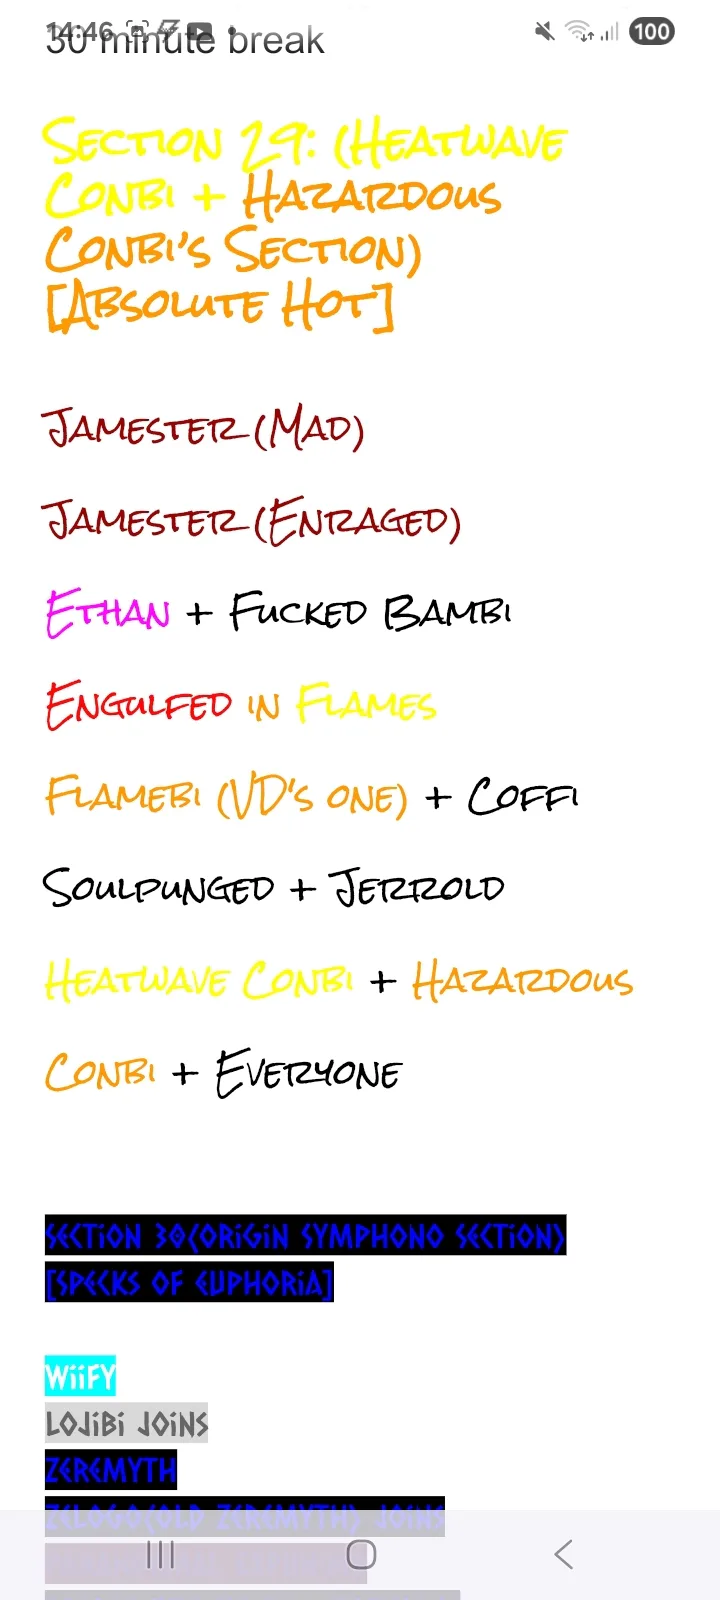 14:46
100
30 minute break
Section 29: (Heatwave
Conbi + Hazardous
Conbi's Section)
[Absolute Hot]
Jamester (Mad)
Jamester (Enraged)
Ethan + Fucked Bambi
Engulfed in Flames
Flamebi (VD's one) + Coffi
Soulpunged + Jerrold
Heatwave Conbi + Hazardous
Conbi + Everyone
Section 30(Origin Symphono Section)
[Specks of Euphoria]
Wiify
Lojibi joins
Zeremyth
Zelogo(Old Zeremyth) joins